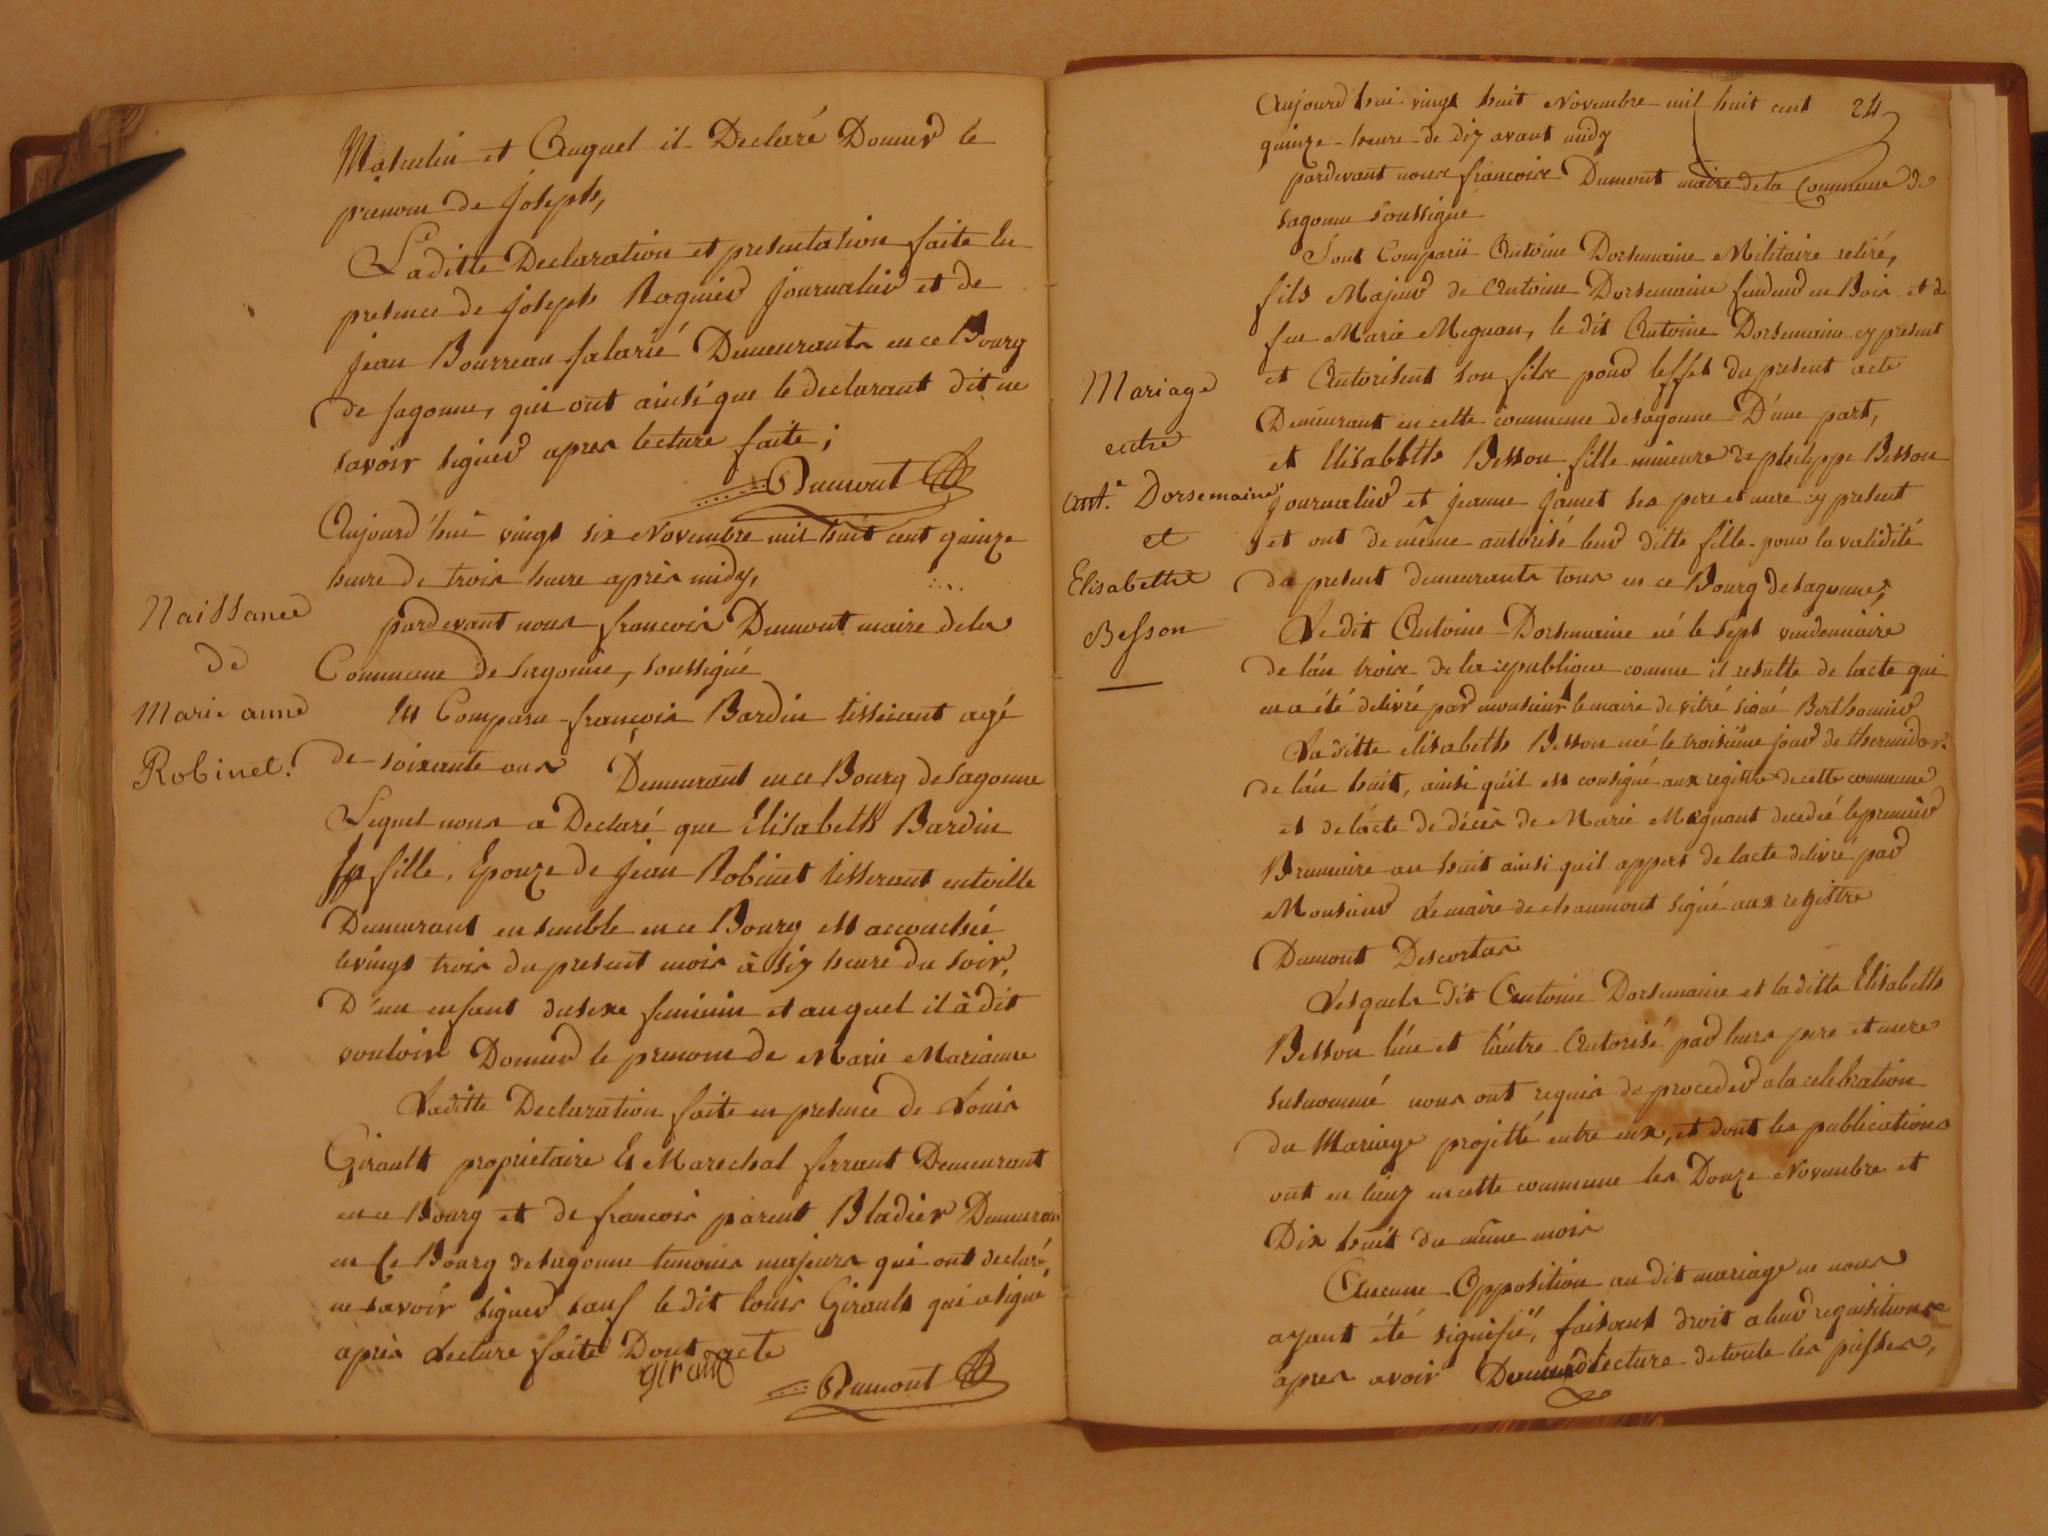 Masculin et Auquel il Declaré Donner le
prenom de joseph,
Laditte Declaration et presentation faite En
presence de joseph Rognier journalier et de
jean Bourreau salarié Demeurants en ce Bourg
de sagonne, qui ont ainsi que le declarant dit ne
savoir signer apres lecture faite;
Dumont
Aujourd'hui vingt six Novembre mil huit cent quinze
heure de trois heure après midy,
pardevant nous francois Dumont maire dela
Commune de sagonne, soussigné
Est Comparu françois Bardin tisserant agé
de soixante ans Demeurant en ce Bourg de sagonne
Lequel nous a Declaré que Elisabeth Bardin
sa fille, Epouze de jean Robinet tisserant entoille
Demeurant ensemble en ce Bourg est accouchée
le vingt trois du present mois à six heure du soir,
D'un enfant du sexe feminin et auquel il à dit
vouloir Donner le prenom de Marie Marianne
Laditte Declaration faite en presence de Louis
Girault proprietaire Et Marechal ferrant Demeurant
en ce Bourg et de francois parent Bladier Demeuran
en Ce Bourg de sagonne temoins majeurs qui ont declaré,
ne savoir signer sauf le dit louis Girault qui a signé
après Lecture faite Dont acte
Girault
Dumont
Naissance
de
Marie anne
Robinet.
24
Aujourd hui vingt huit Novembre mil huit cent
quinze heure de dix avant midy
pardevant nous francois Dumont maire dela Commune de
sagonne soussigné
Sont Comparu Antoine Dorsemaine Militaire retiré,
fils Majeur de Antoine Dorsemaine fendeur en Bois et de
feu Marie Mignan, le dit Antoine Dorsemaine cy present
et Autorisent son fils pour leffet du present acte
Demeurant en cette commune de sagonne D'une part,
et Elisabeth Besson fille mineure de philyppe Besson
journalier et jeanne jamet ses pere et mere cy present
et ont de même autorisé leur ditte fille pour la validité
du present demeurants tous en ce Bourg de sagonne;
Le dit Antoine Dorsemaine né le sept vendemiaire
de l'an trois de la republique comme il resulte de lacte qui
en a été delivré par monsieur le maire de vitré signé Berthomier
Laditte elisabeth Besson née le troisiême jour de thermidor
de l'an huit, ainsi qu'il est consigné aux registre de cette commune
et de lácte de décès de Marie Mignant decedée le premier
Brumaire an huit ainsi quil appert de lacte delivré par
Monsieur Le maire de chaumont signé aux registre
Dumont Descortas
Lesquels dit Antoine Dorsemaine et laditte Elisabeth
Besson l'un et l'autre Autorisé par leurs pere et mere
susnommé nous ont requis de proceder a la celebration
du Mariage projetté entre eux, et dont les publications
ont eu lieuz en cette commune les Douze Novembre et
Dix huit du même mois
Aucune Opposition au dit mariage ne nous
ayant été signifié, faisant droit a leur requisitions
âpres avoir Donner lecture de toute les piesses,
Mariage
entre
ant.e Dorsemaine
et
Elisabethe
Besson